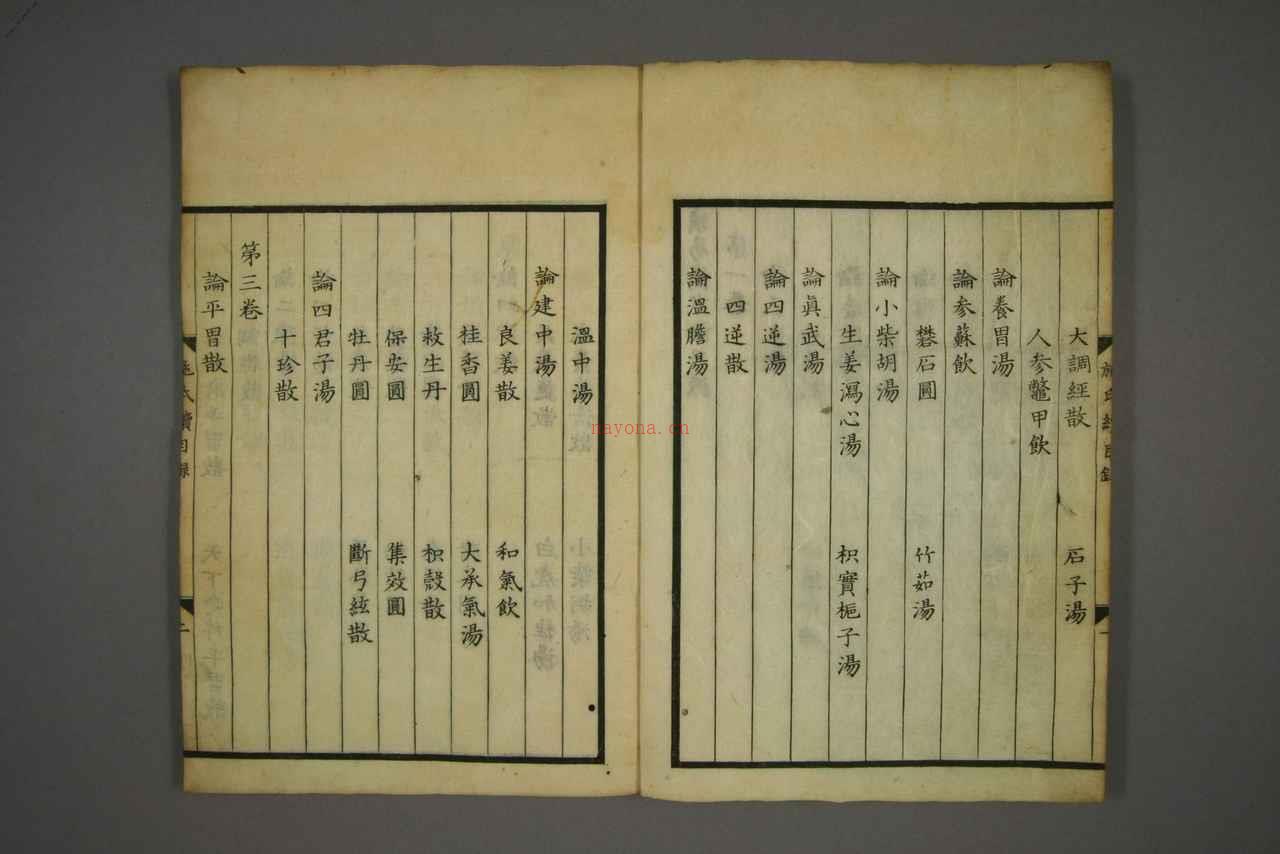 大調經散 石子湯
人參鼈甲飲
論養胃湯
論參蘇飲
礬石圓 竹茹湯
論小柴胡湯
生姜瀉心湯 枳實梔子湯
論眞武湯
論四逆湯
四逆散
論溫膽湯
溫中湯
論建中湯
良姜散 和氣飲
桂香圓 大承氣湯
救生丹 枳殼散
保安圓 集效圓
牡丹圓 斷弓絃散
論四君子湯
十珍散
第三卷
論平胃散
施氏續目錄
二
nayona.cn